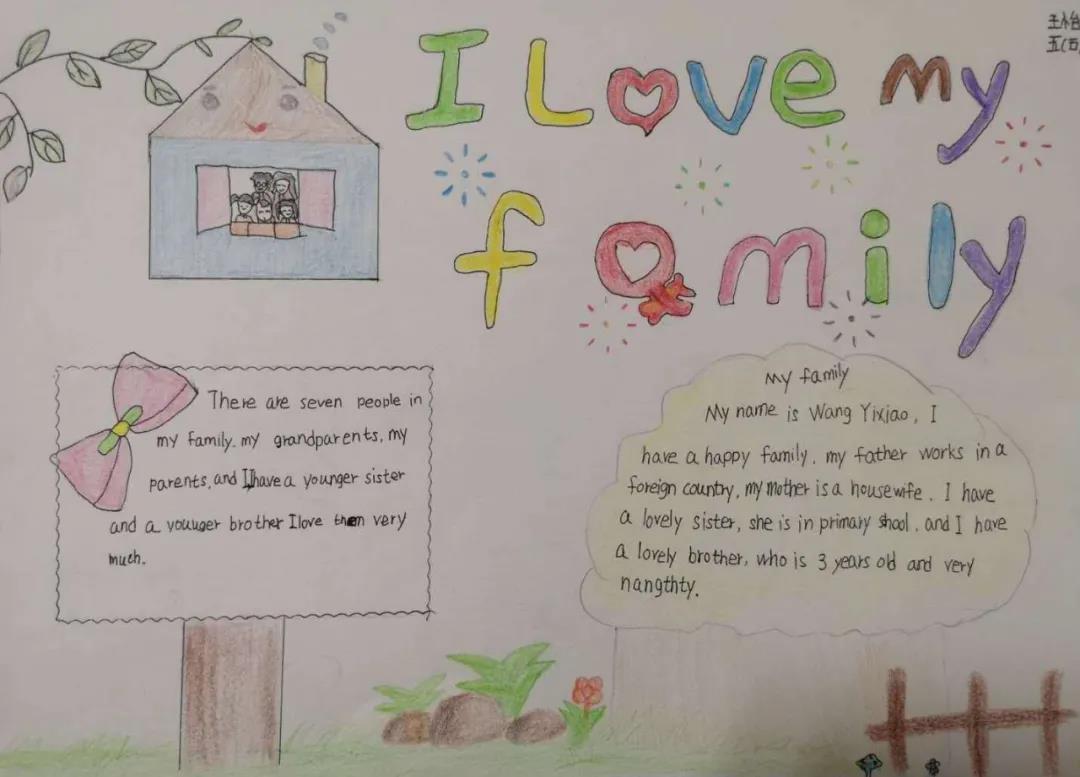 I Love my
family
There are seven people in
my family. my grandparents, my
parents, and I have a younger sister
and a youuger brother I love them very
much.
My family
My name is Wang Yixiao, I
have a happy family, my father works in a
foreign country, my mother is a housewife. I have
a lovely sister, she is in primary shool, and I have
a lovely brother, who is 3 years old and very
nangthty.